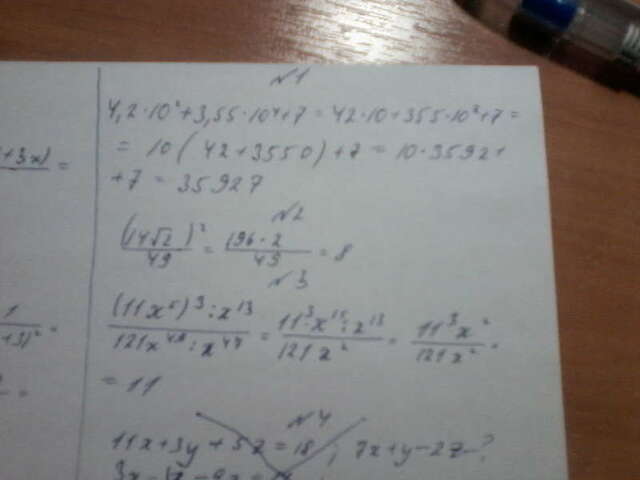 №1
4,2·10²+3,55·10⁴+7 = 42·10+355·10²+7 =
+3x) =
= 10(42+3550)+7 = 10·3592+
+7 = 35927
№2
(14√2)²/49 = 196·2/49 = 8
№3
1
+3)² =
(11x⁵)³:x¹³/121x⁴⁹:x⁴⁷ = 11³·x¹⁵:x¹³/121x² = 11³x²/121x² =
= 11
№4
11x+3y+5z=18, 7x+y-2z-?